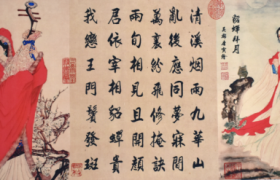 貂蟬拜月
清溪烟雨九華山
亂後應同夢寐間
萬裏分飛修掩訣
兩旬相見且開顏
君依宰相貂蟬貴
我戀王門鬢發斑